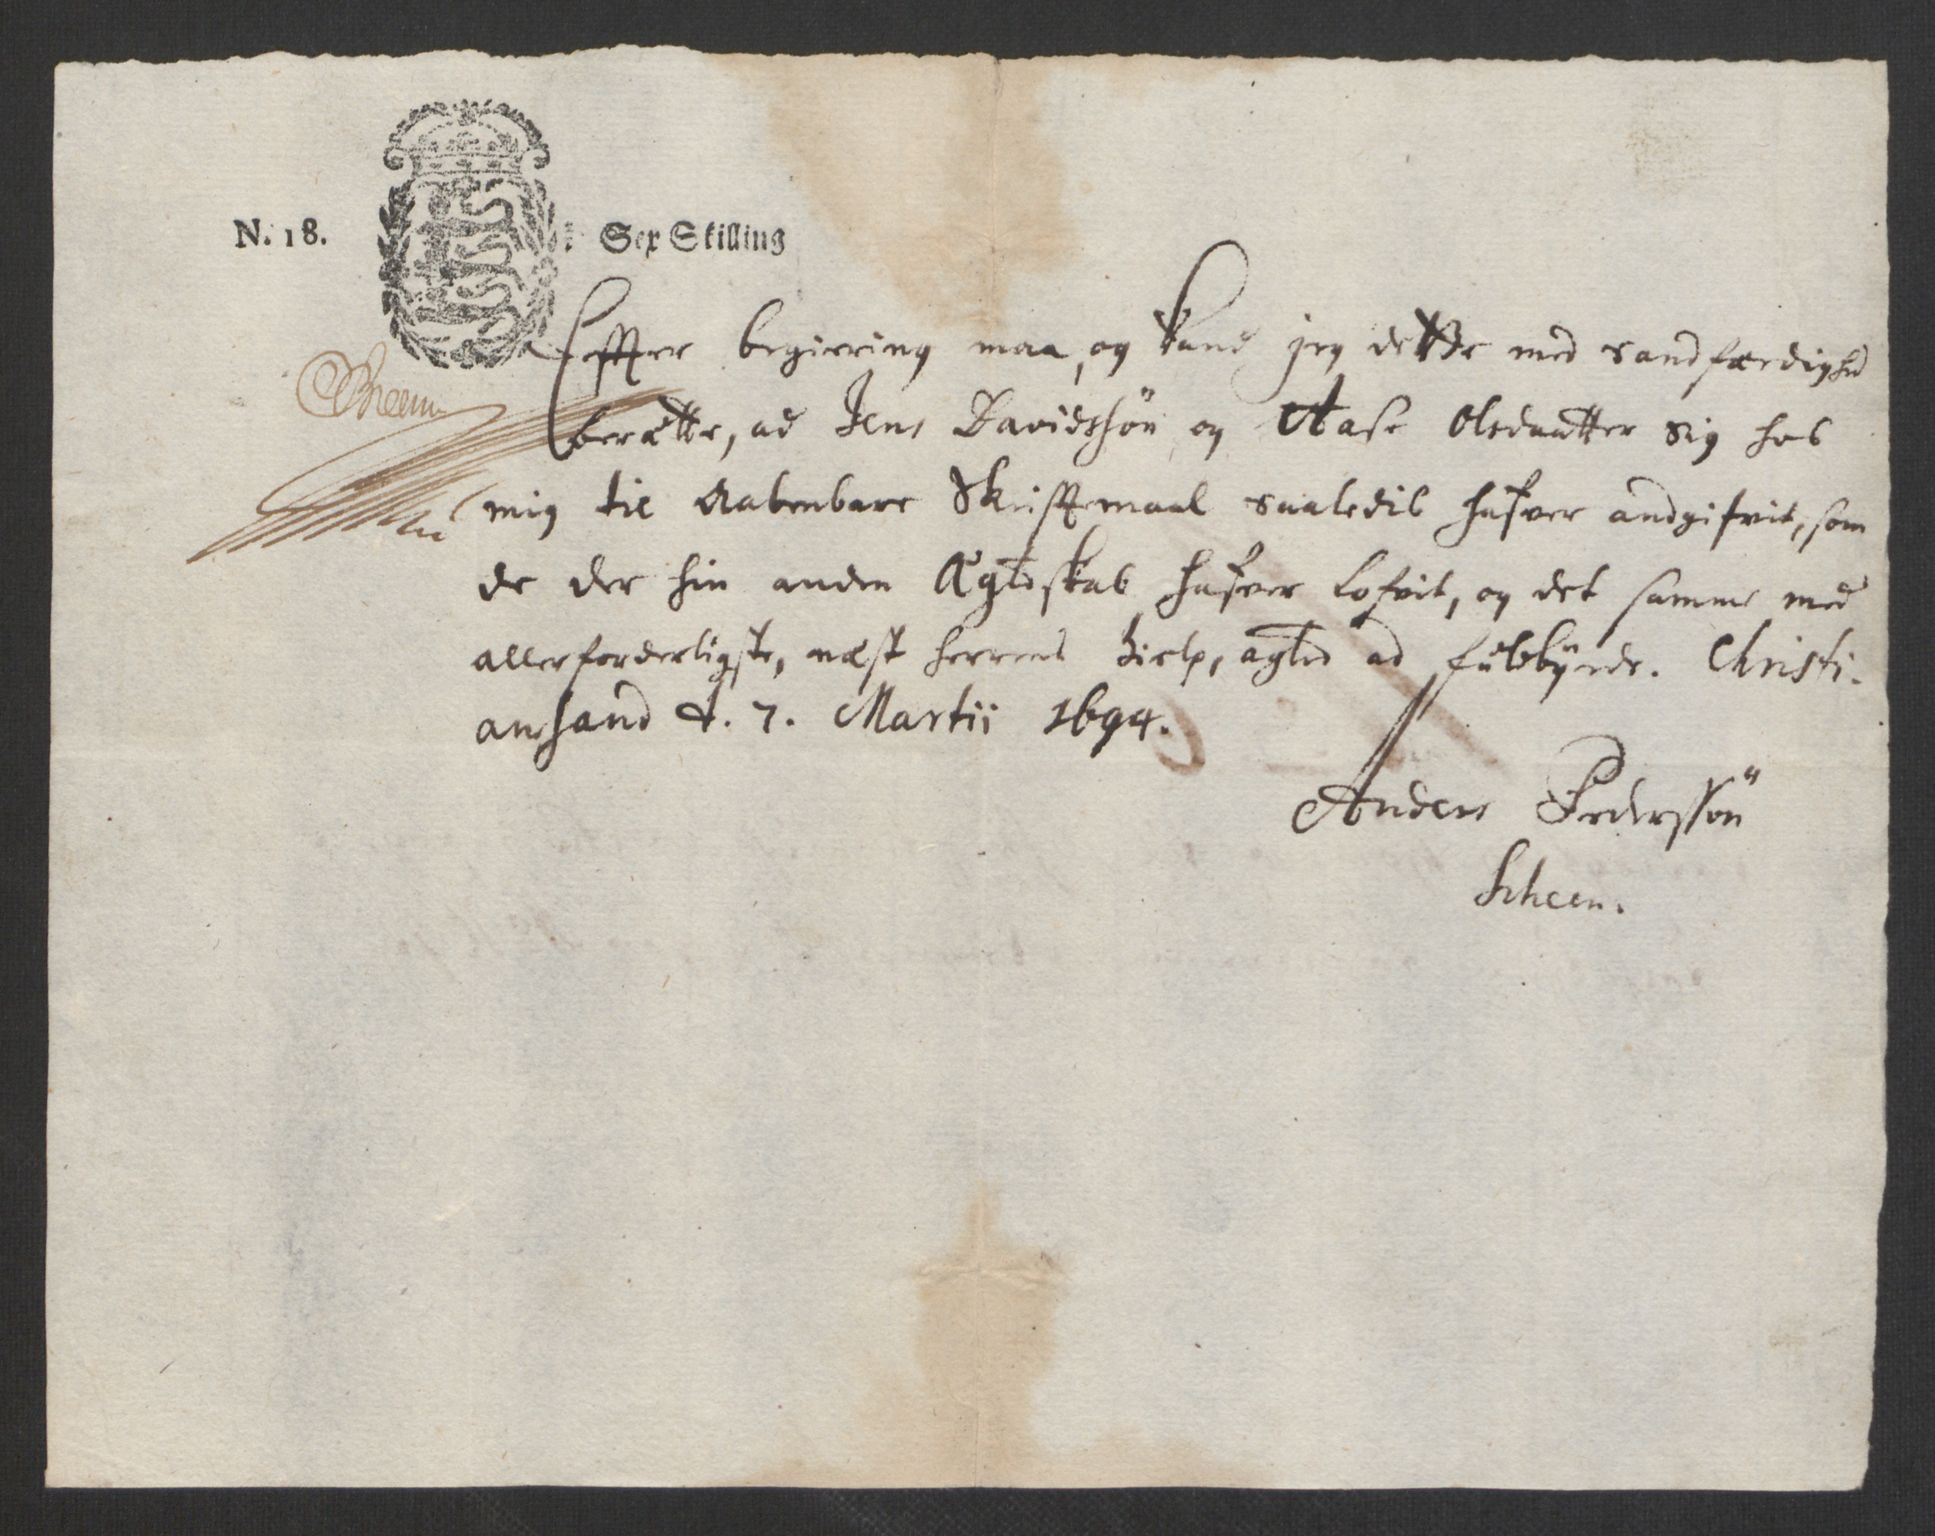 N. 18. Sex Skilling
Effter begiering maa og kand jeg dette med sandfærdighd
berætte, ad Jens Davidssön og Aase Olsdaatter sig hos
mig til Aabenbare Skrifftemaal saaledis hafver andgifvit, som
de der hin anden Ægteskab hafver lofvit, og det samme med
allerforderligste, næst herrens hielp, agter ad fuldbyrde. Christi-
ansand d. 7. Martii 1694.
Anders Pederssön
Scheen.